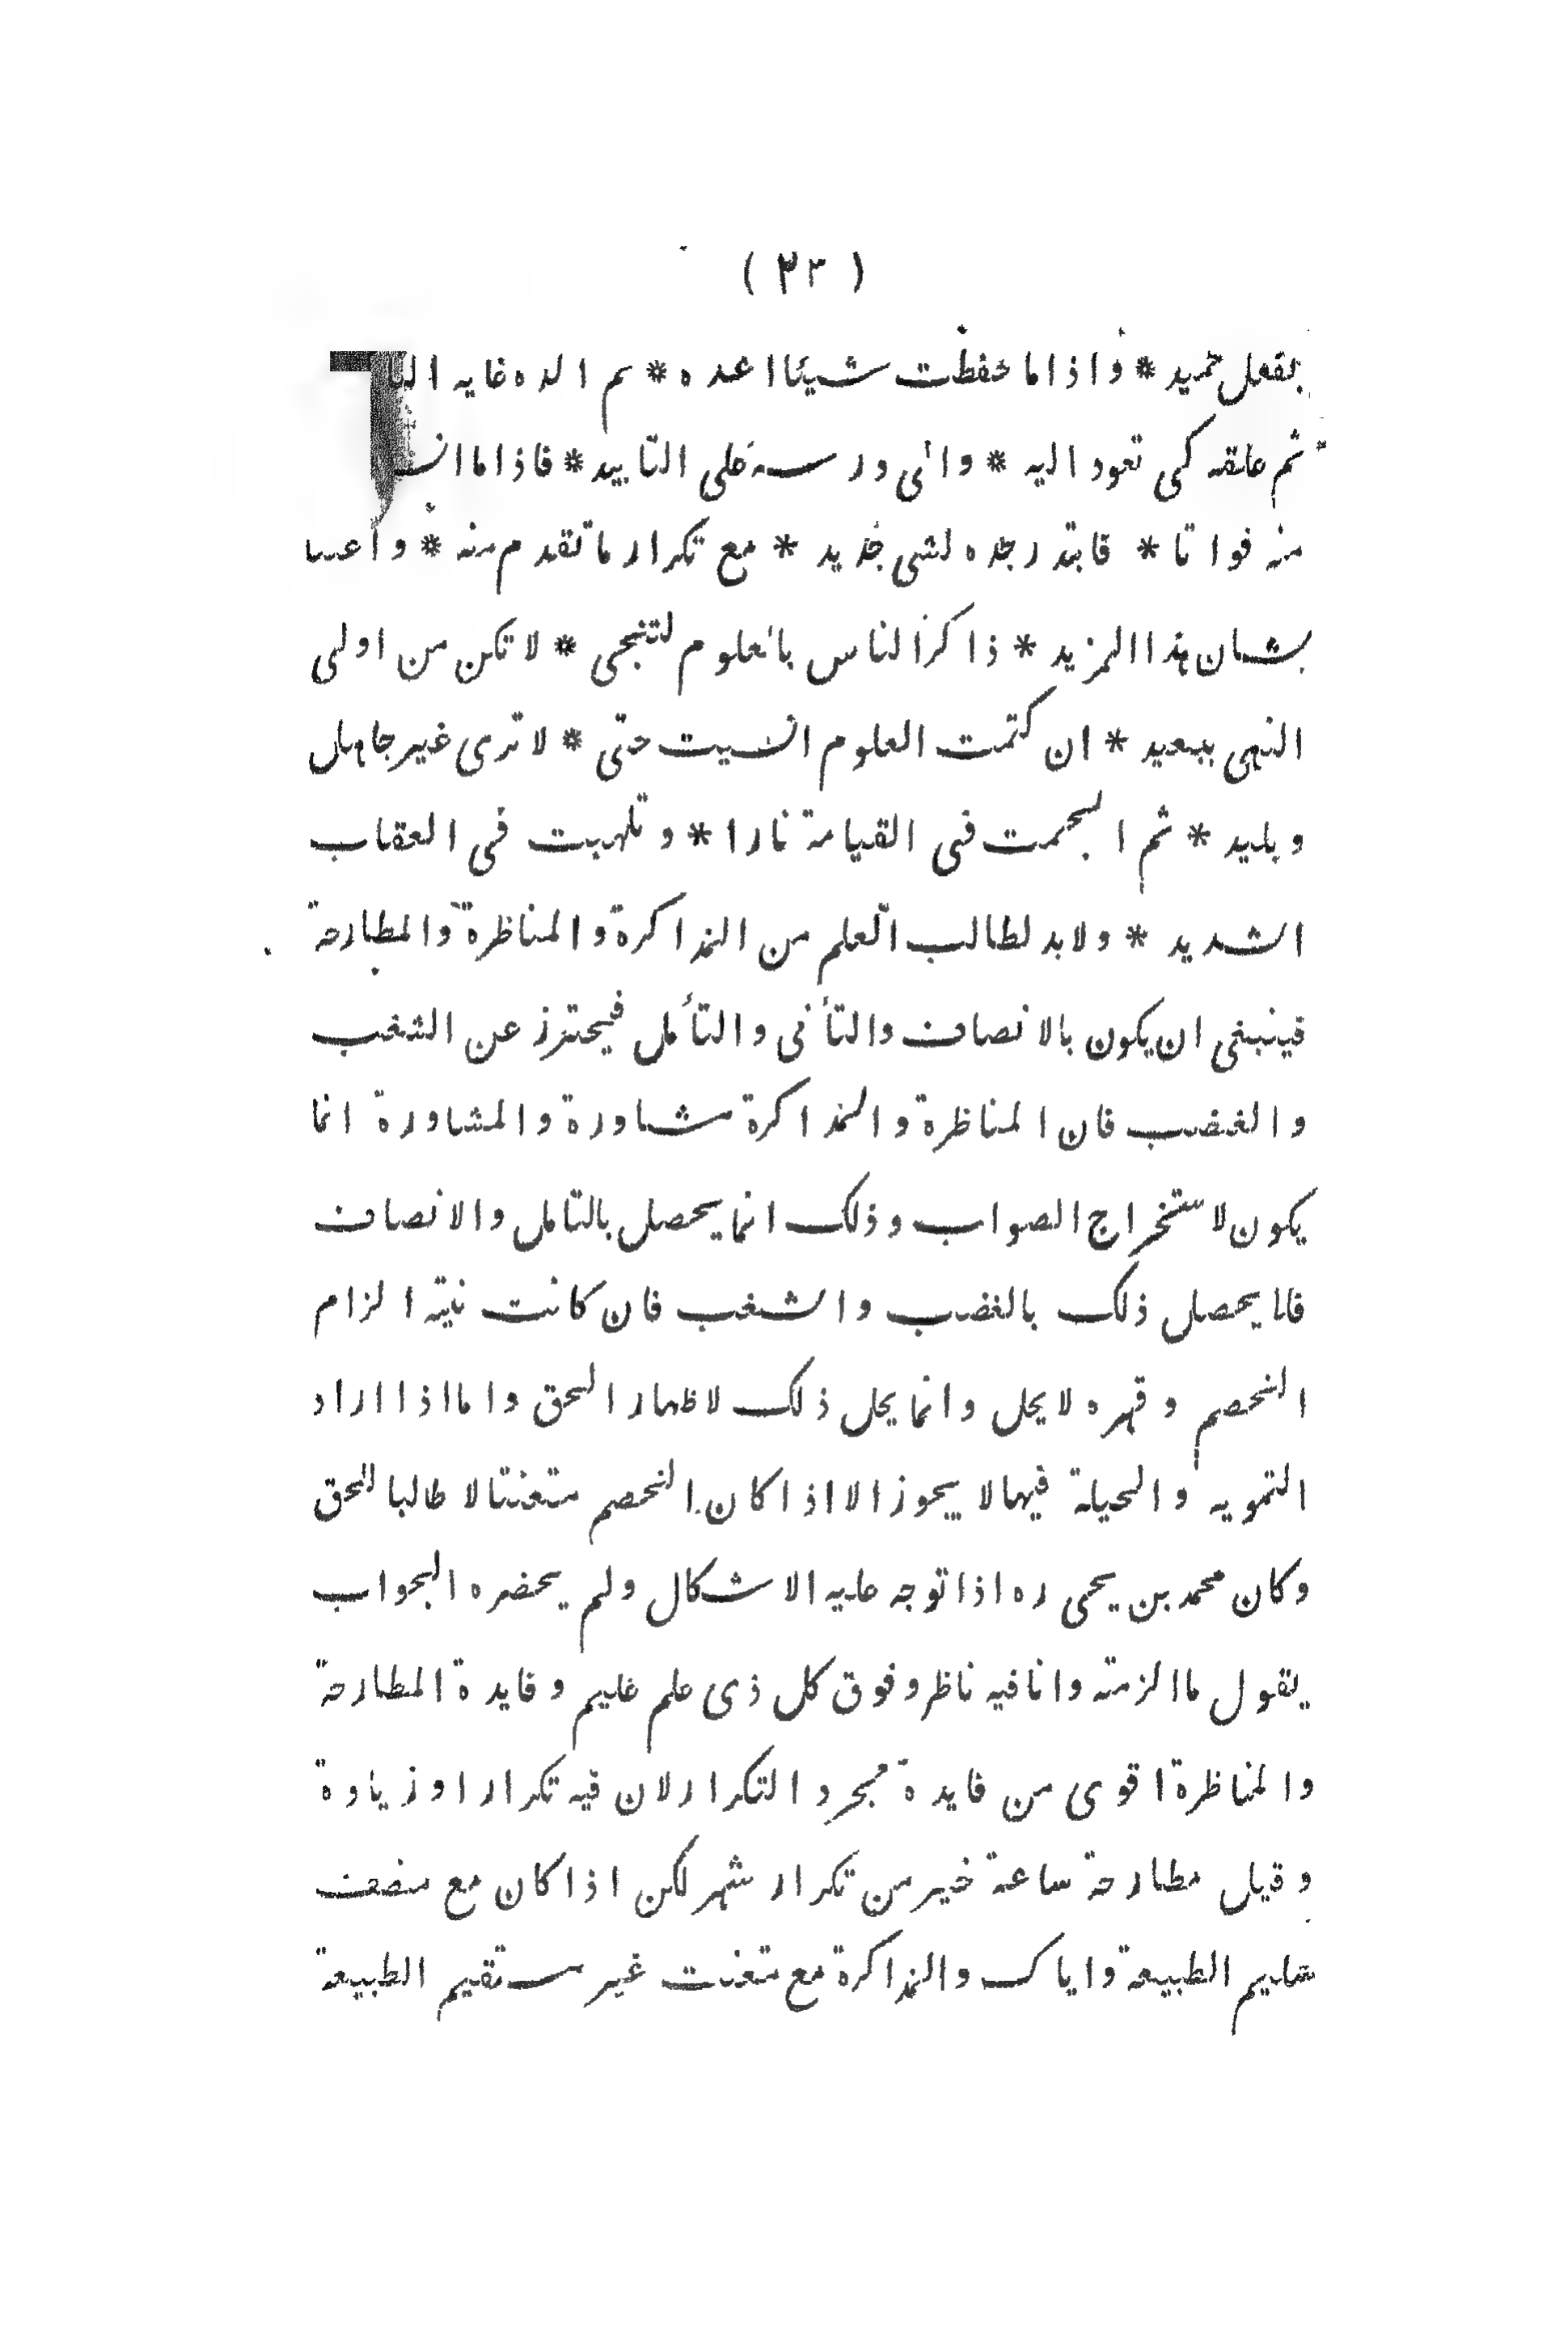 ( ٢٣ )
بفعل حميد * واذا ما حفظت شيئا اعده * ثم اكده غايه
ثم علقه كى تعود اليه * والى درسه على التابيد * فاذا ما
منه فواتا * فابتدر بعده لشى جديد * مع تكرار ما تقدم منه *
بشان هذا المزيد * ذاكر الناس بالعلوم لتنجى * لا تكن من اولى
النهى ببعيد * ان كتمت العلوم انسيت حتى * لا ترى غير جاهل
وبليد * ثم الجمت فى القيامة نارا * وتلهبت فى العقاب
الشديد * ولابد لطالب العلم من المذاكرة والمناظرة والمطارحة
فينبغى ان يكون بالانصاف والتأنى والتأمل فيحترز عن الشغب
والغضب فان المناظرة والمذاكرة مشاورة والمشاورة انما
يكون لاستخراج الصواب وذلك انما يحصل بالتامل والانصاف
فلا يحصل ذلك بالغضب والشغب فان كانت نيته الزام
الخصم وقهره لا يحل وانما يحل ذلك لاظهار الحق واما اذا اراد
التمويه والحيلة فيها لا يجوز الا اذا كان الخصم متعنتا لا طالبا للحق
وكان محمد بن يحى ره اذا توجه عليه الاشكال ولم يحضره الجواب
يقول ما الزمته وانا فيه ناظر وفوق كل ذى علم عليم وفايدة المطارحة
والمناظرة اقوى من فايدة مجرد التكرار لان فيه تكرارا وزيادة
وقيل مطارحة ساعة خير من تكرار شهر لكن اذا كان مع منصف
سليم الطبيعة واياك والمذاكرة مع متعنت غير مستقيم الطبيعة